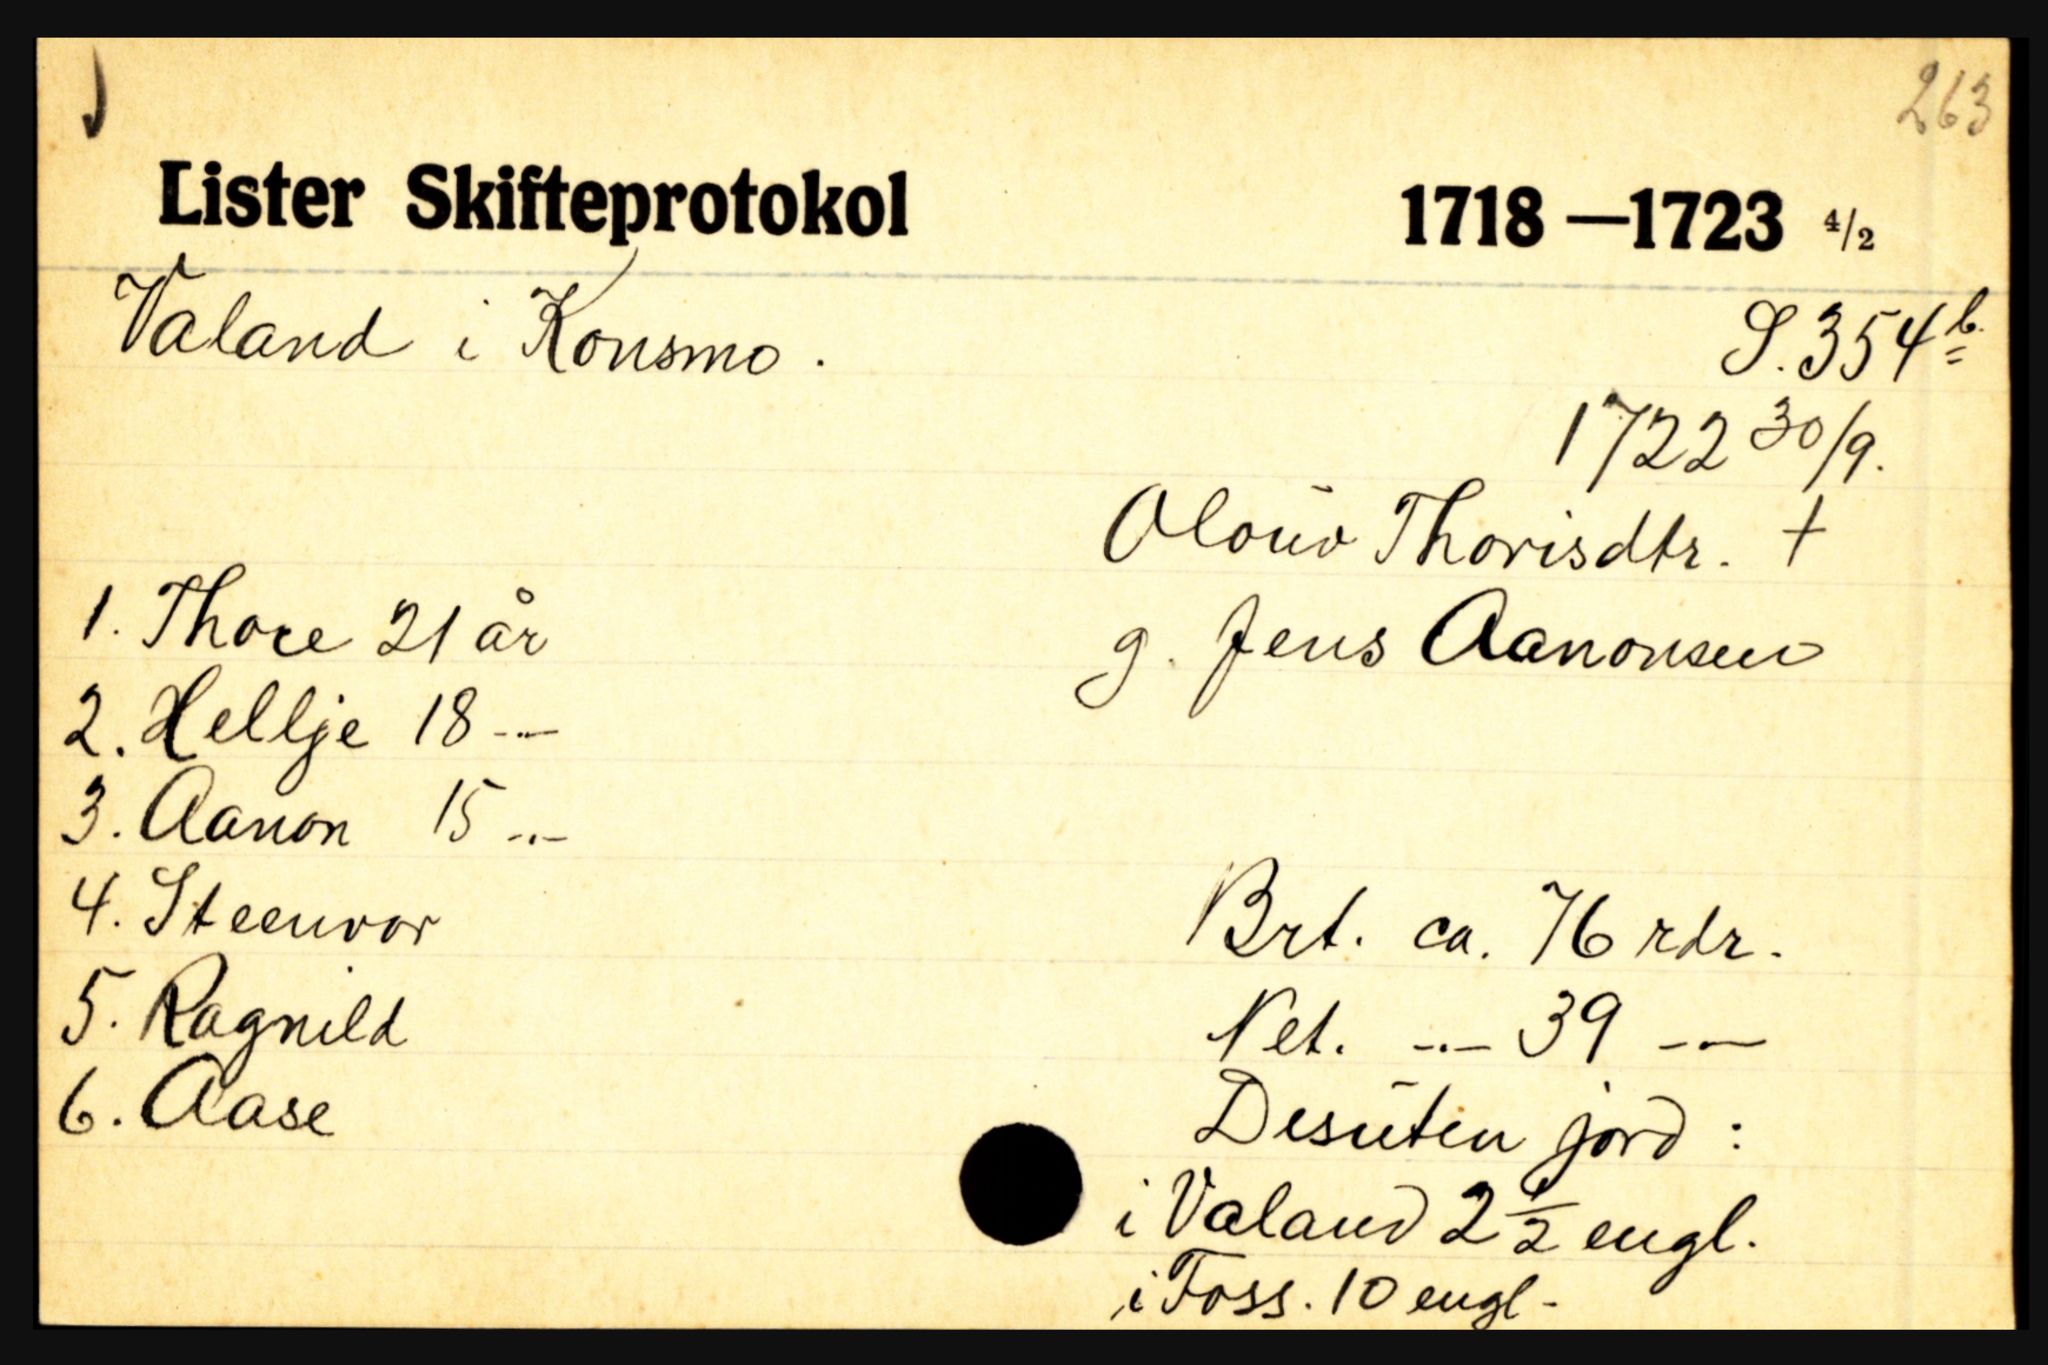 263
Lister Skifteprotokol 1718—1723 4/2
Valand i Konsmo.
S. 354 b.
1722 30/9.
Oloŭv Thorisdtr. †
g. Jens Aanonsen
1. Thore 21 år
2. Hellje 18 -"-
3. Aanon 15 -"-
4. Steenvor
5. Ragnild
6. Aase
Brt. ca. 76 rdr.
Net. -"- 39 -"-
Desŭten jord :
i Valand 2 1/2 engl.
i Foss. 10 engl-